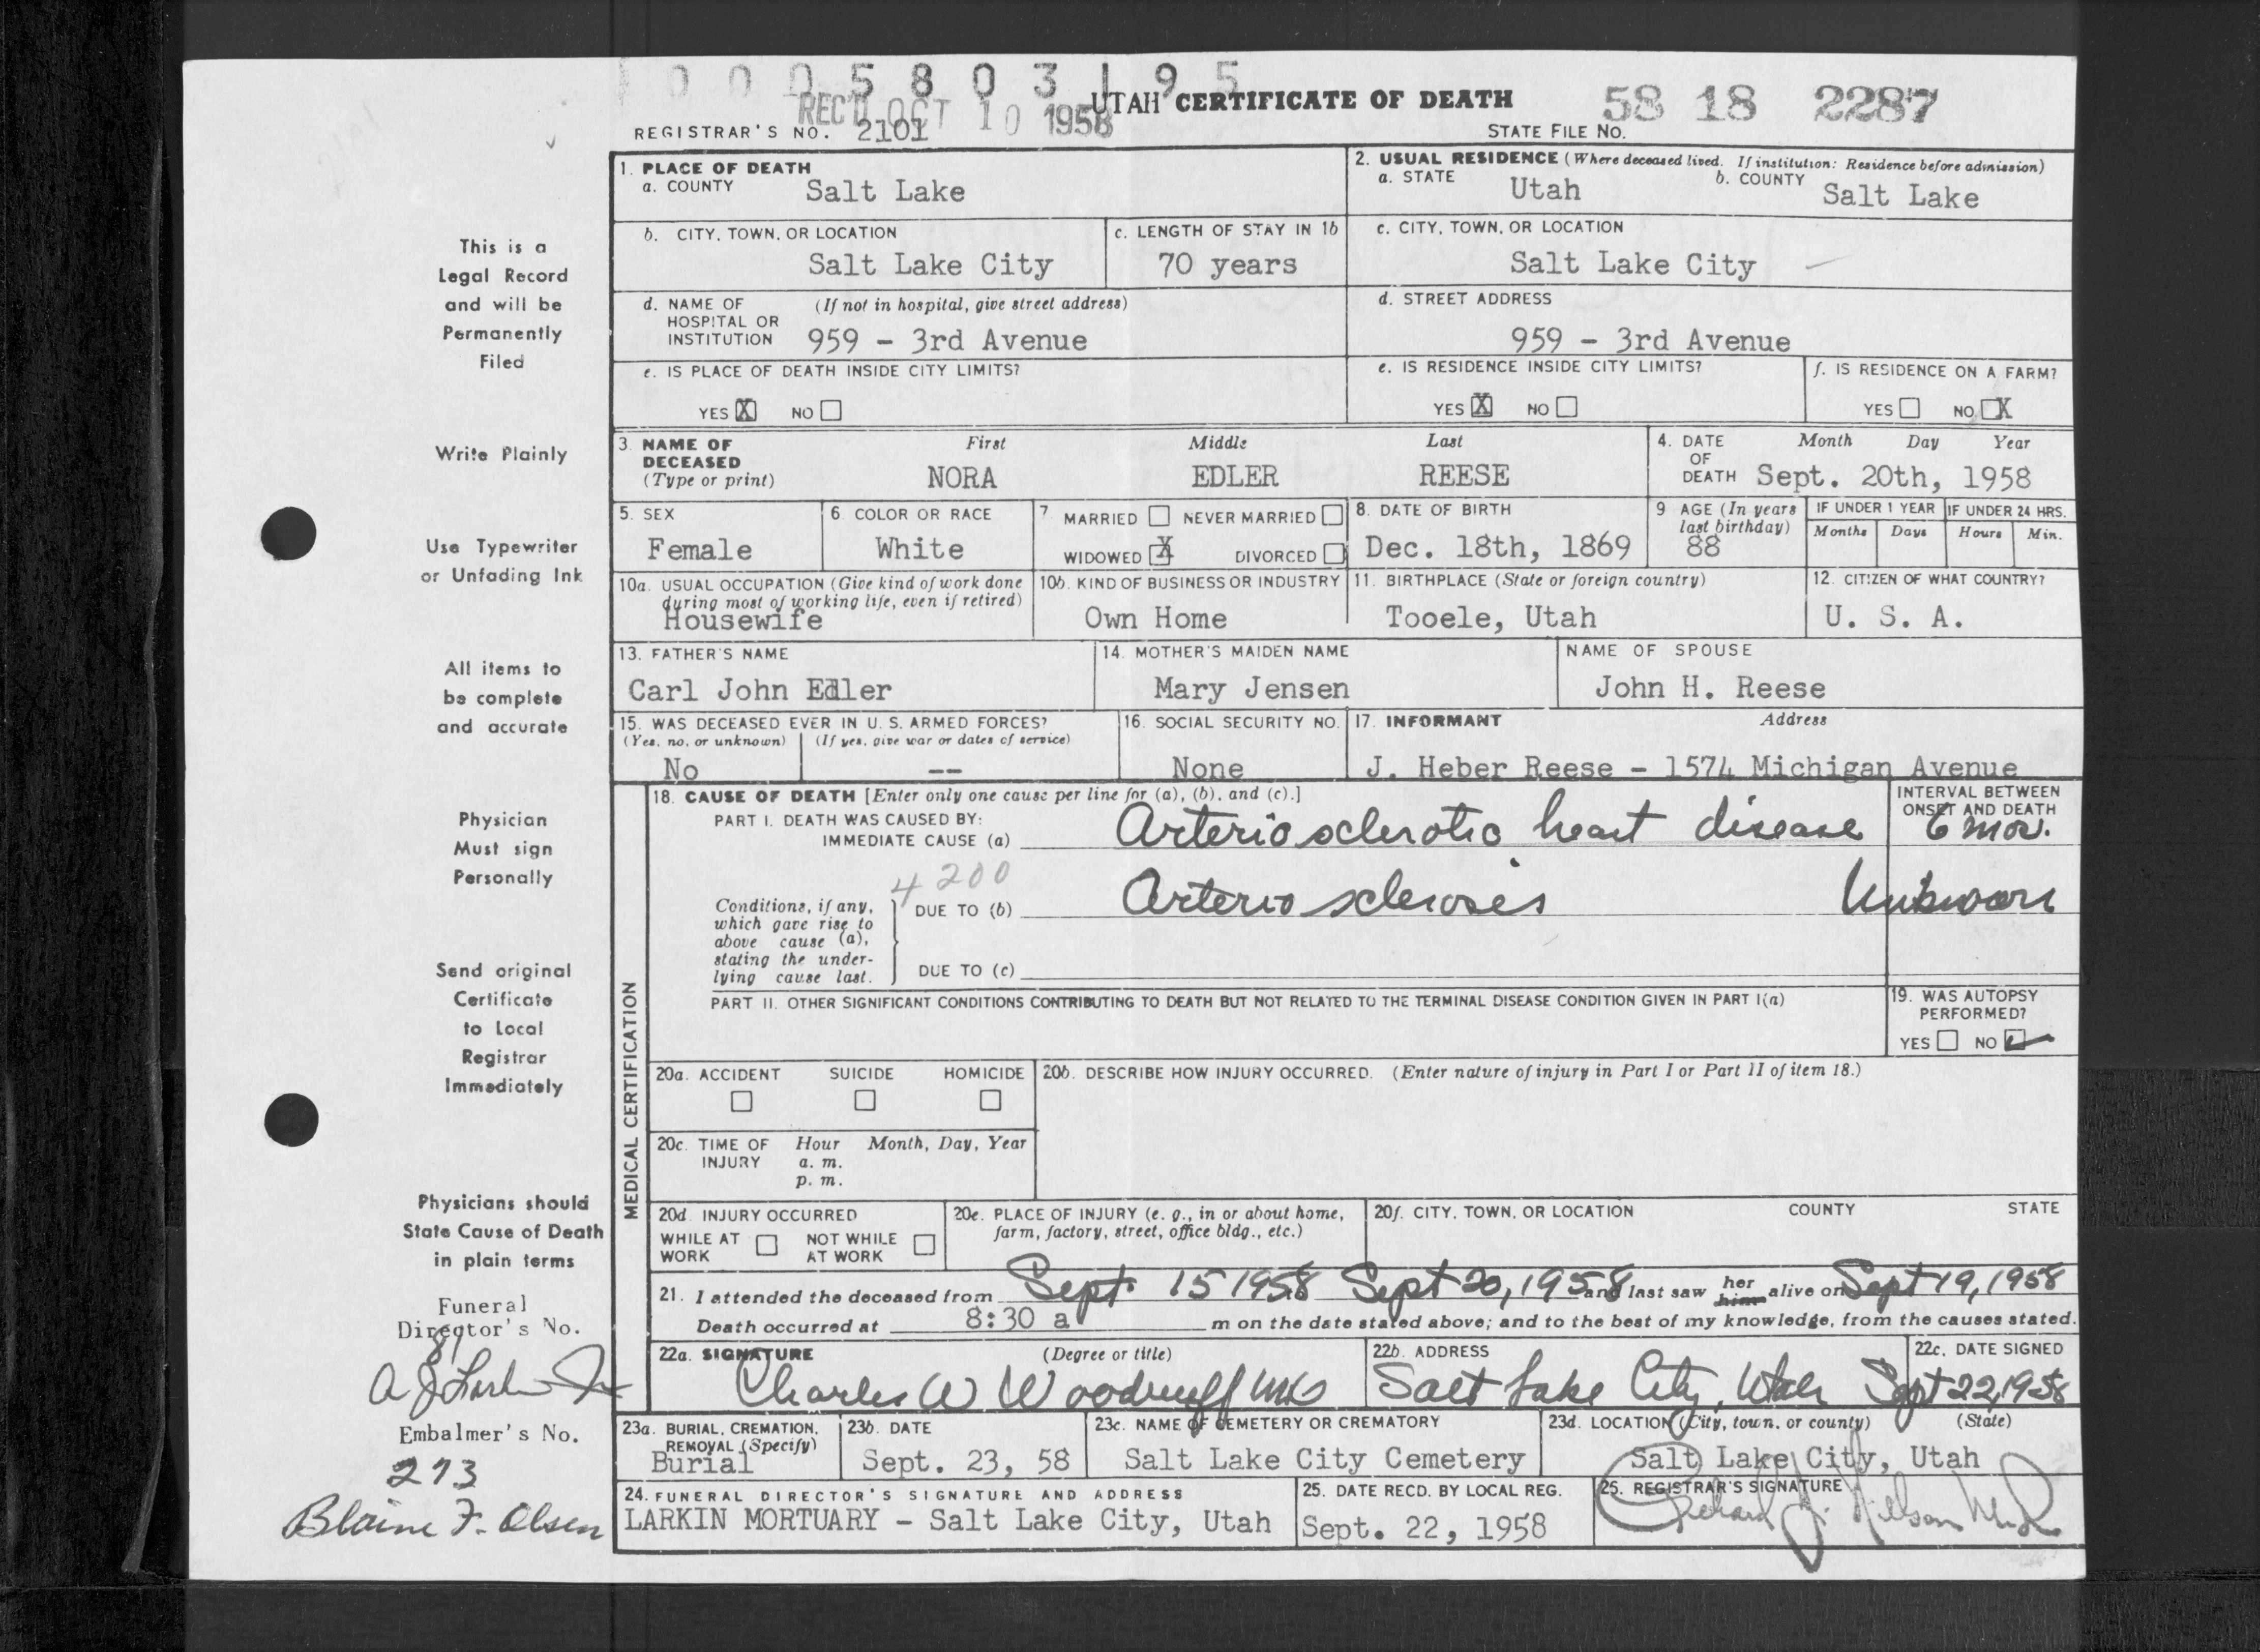 0005803195
REC'D OCT 10 1958
UTAH CERTIFICATE OF DEATH
58 18 2287
REGISTRAR'S NO. 2101
STATE FILE NO.
1. PLACE OF DEATH
a. COUNTY Salt Lake
2. USUAL RESIDENCE (Where deceased lived. If institution: Residence before admission)
a. STATE Utah b. COUNTY Salt Lake
b. CITY, TOWN, OR LOCATION
Salt Lake City
c. LENGTH OF STAY IN 1b
70 years
c. CITY, TOWN, OR LOCATION
Salt Lake City
d. NAME OF HOSPITAL OR INSTITUTION (If not in hospital, give street address)
959 - 3rd Avenue
d. STREET ADDRESS
959 - 3rd Avenue
e. IS PLACE OF DEATH INSIDE CITY LIMITS?
YES X NO
e. IS RESIDENCE INSIDE CITY LIMITS?
YES X NO
f. IS RESIDENCE ON A FARM?
YES NO X
3. NAME OF DECEASED (Type or print)
First Middle Last
NORA EDLER REESE
4. DATE OF DEATH Month Day Year
Sept. 20th, 1958
5. SEX
Female
6. COLOR OR RACE
White
7. MARRIED NEVER MARRIED
WIDOWED X DIVORCED
8. DATE OF BIRTH
Dec. 18th, 1869
9 AGE (In years last birthday)
88
IF UNDER 1 YEAR
Months Days
IF UNDER 24 HRS.
Hours Min.
10a. USUAL OCCUPATION (Give kind of work done during most of working life, even if retired)
Housewife
10b. KIND OF BUSINESS OR INDUSTRY
Own Home
11. BIRTHPLACE (State or foreign country)
Tooele, Utah
12. CITIZEN OF WHAT COUNTRY?
U. S. A.
13. FATHER'S NAME
Carl John Edler
14. MOTHER'S MAIDEN NAME
Mary Jensen
NAME OF SPOUSE
John H. Reese
15. WAS DECEASED EVER IN U. S. ARMED FORCES?
(Yes, no, or unknown) (If yes, give war or dates of service)
No --
16. SOCIAL SECURITY NO.
None
17. INFORMANT Address
J. Heber Reese - 1574 Michigan Avenue
MEDICAL CERTIFICATION
18. CAUSE OF DEATH [Enter only one cause per line for (a), (b), and (c).]
INTERVAL BETWEEN ONSET AND DEATH
PART I. DEATH WAS CAUSED BY:
IMMEDIATE CAUSE (a) Arteriosclerotic heart disease 6 mos.
4200
Conditions, if any, which gave rise to above cause (a), stating the underlying cause last.
DUE TO (b) Arteriosclerosis Unknown
DUE TO (c)
PART II. OTHER SIGNIFICANT CONDITIONS CONTRIBUTING TO DEATH BUT NOT RELATED TO THE TERMINAL DISEASE CONDITION GIVEN IN PART I(a)
19. WAS AUTOPSY PERFORMED?
YES NO
20a. ACCIDENT SUICIDE HOMICIDE
20b. DESCRIBE HOW INJURY OCCURRED. (Enter nature of injury in Part I or Part II of item 18.)
20c. TIME OF INJURY Hour Month, Day, Year
a. m.
p. m.
20d. INJURY OCCURRED
WHILE AT WORK NOT WHILE AT WORK
20e. PLACE OF INJURY (e. g., in or about home, farm, factory, street, office bldg., etc.)
20f. CITY, TOWN, OR LOCATION COUNTY STATE
21. I attended the deceased from Sept. 15 1958 Sept 20, 1958 and last saw her him alive on Sept 19, 1958
Death occurred at 8:30 a m on the date stated above; and to the best of my knowledge, from the causes stated.
22a. SIGNATURE (Degree or title)
Charles W Woodruff MD
22b. ADDRESS
Salt Lake City, Utah
22c. DATE SIGNED
Sept 22, 1958
23a. BURIAL, CREMATION, REMOVAL (Specify)
Burial
23b. DATE
Sept. 23, 58
23c. NAME OF CEMETERY OR CREMATORY
Salt Lake City Cemetery
23d. LOCATION (City, town, or county) (State)
Salt Lake City, Utah
24. FUNERAL DIRECTOR'S SIGNATURE AND ADDRESS
LARKIN MORTUARY - Salt Lake City, Utah
25. DATE RECD. BY LOCAL REG.
Sept. 22, 1958
25. REGISTRAR'S SIGNATURE
This is a
Legal Record
and will be
Permanently
Filed
Write Plainly
Use Typewriter
or Unfading Ink
All items to
be complete
and accurate
Physician
Must sign
Personally
Send original
Certificate
to Local
Registrar
Immediately
Physicians should
State Cause of Death
in plain terms
Funeral
Director's No.
81
Embalmer's No.
273
Blaine F. Olsen